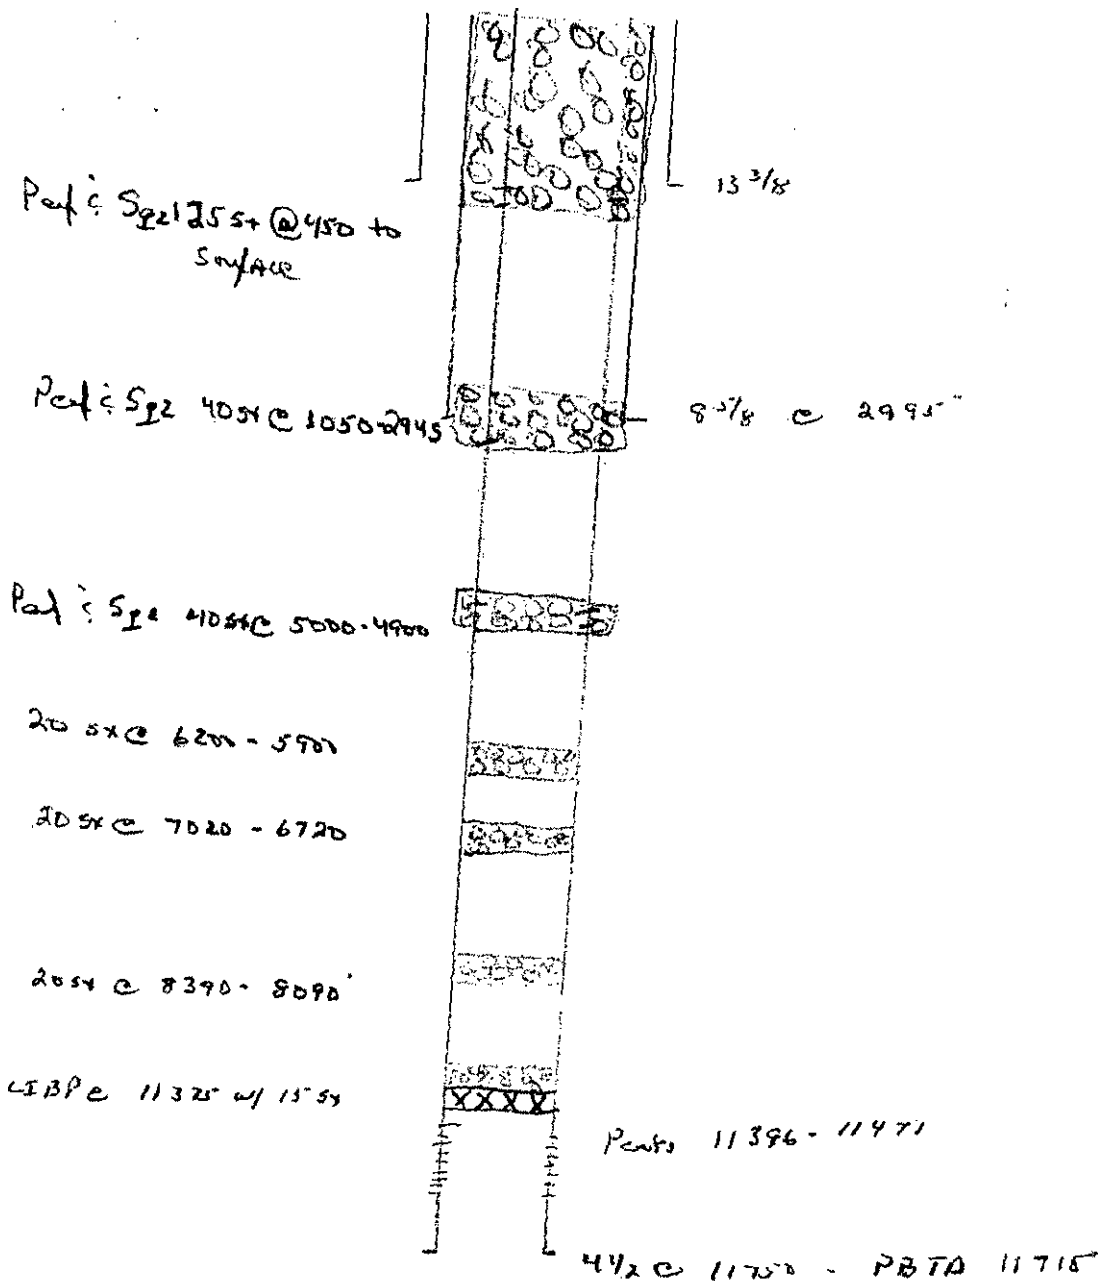 13 3/8
Perf & Sqz 125 sx @ 450 to
Surface
Perf & Sqz 40 sx @ 3050-2945
8 5/8 @ 2995'
Perf & Sqz 40 sx @ 5000-4900
20 sx @ 6200 - 5900
20 sx @ 7020 - 6720
20 sx @ 8390 - 8090'
CIBP @ 11325 w/ 15 sx
Perfs 11396 - 11471
4 1/2 @ 11750 - PBTD 11715